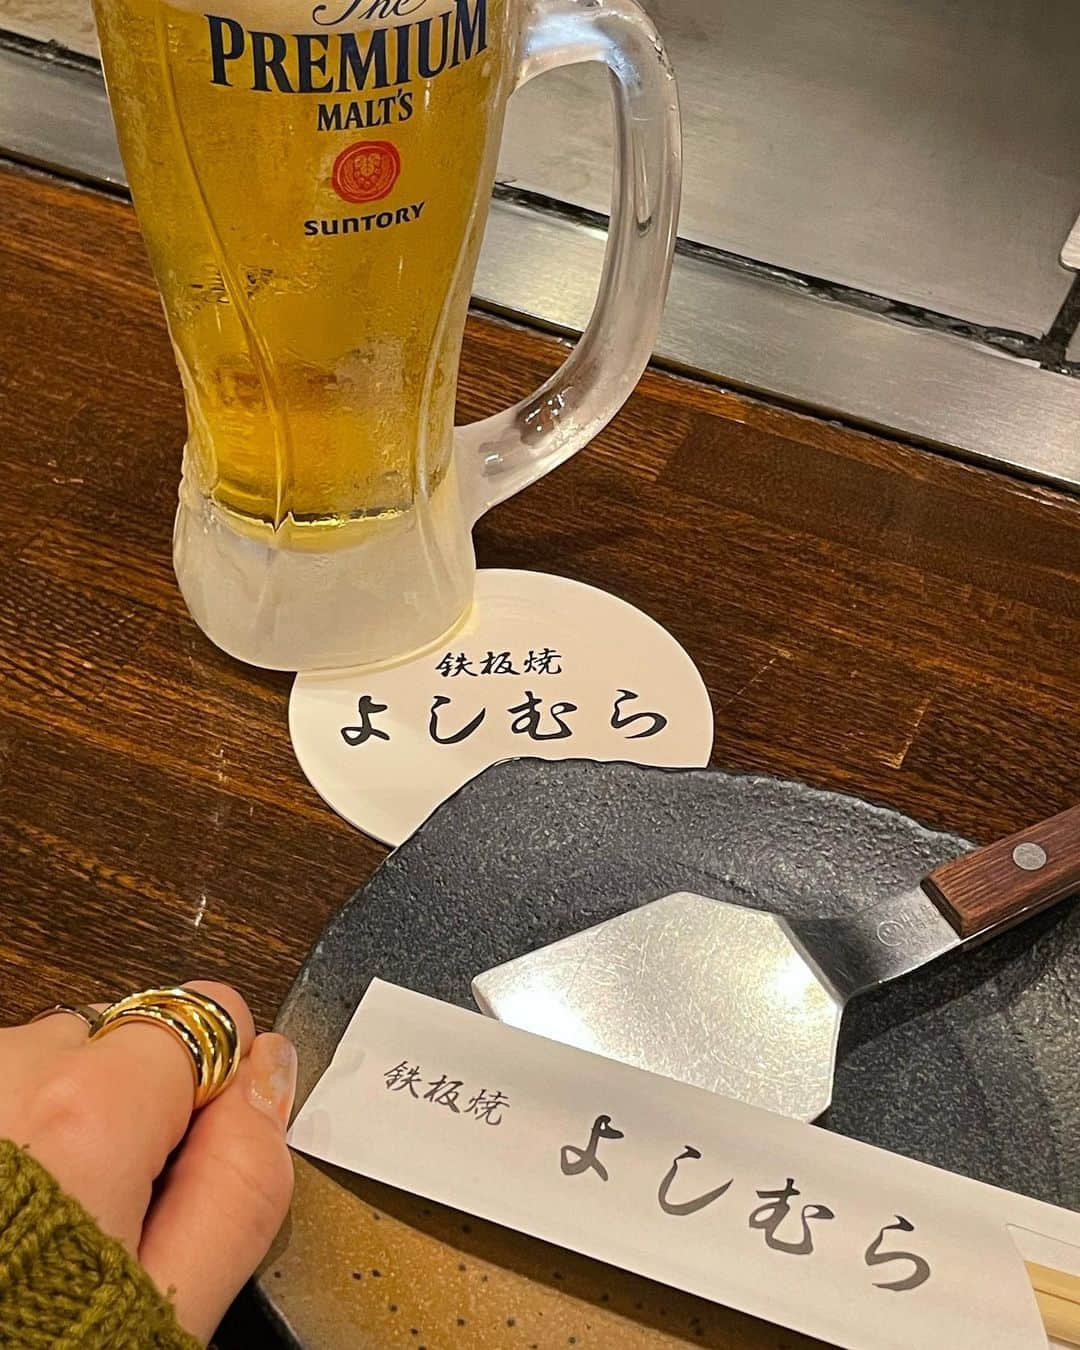 The
PREMIUM
MALT'S
SUNTORY
鉄板焼
よしむら
鉄板焼
よしむら